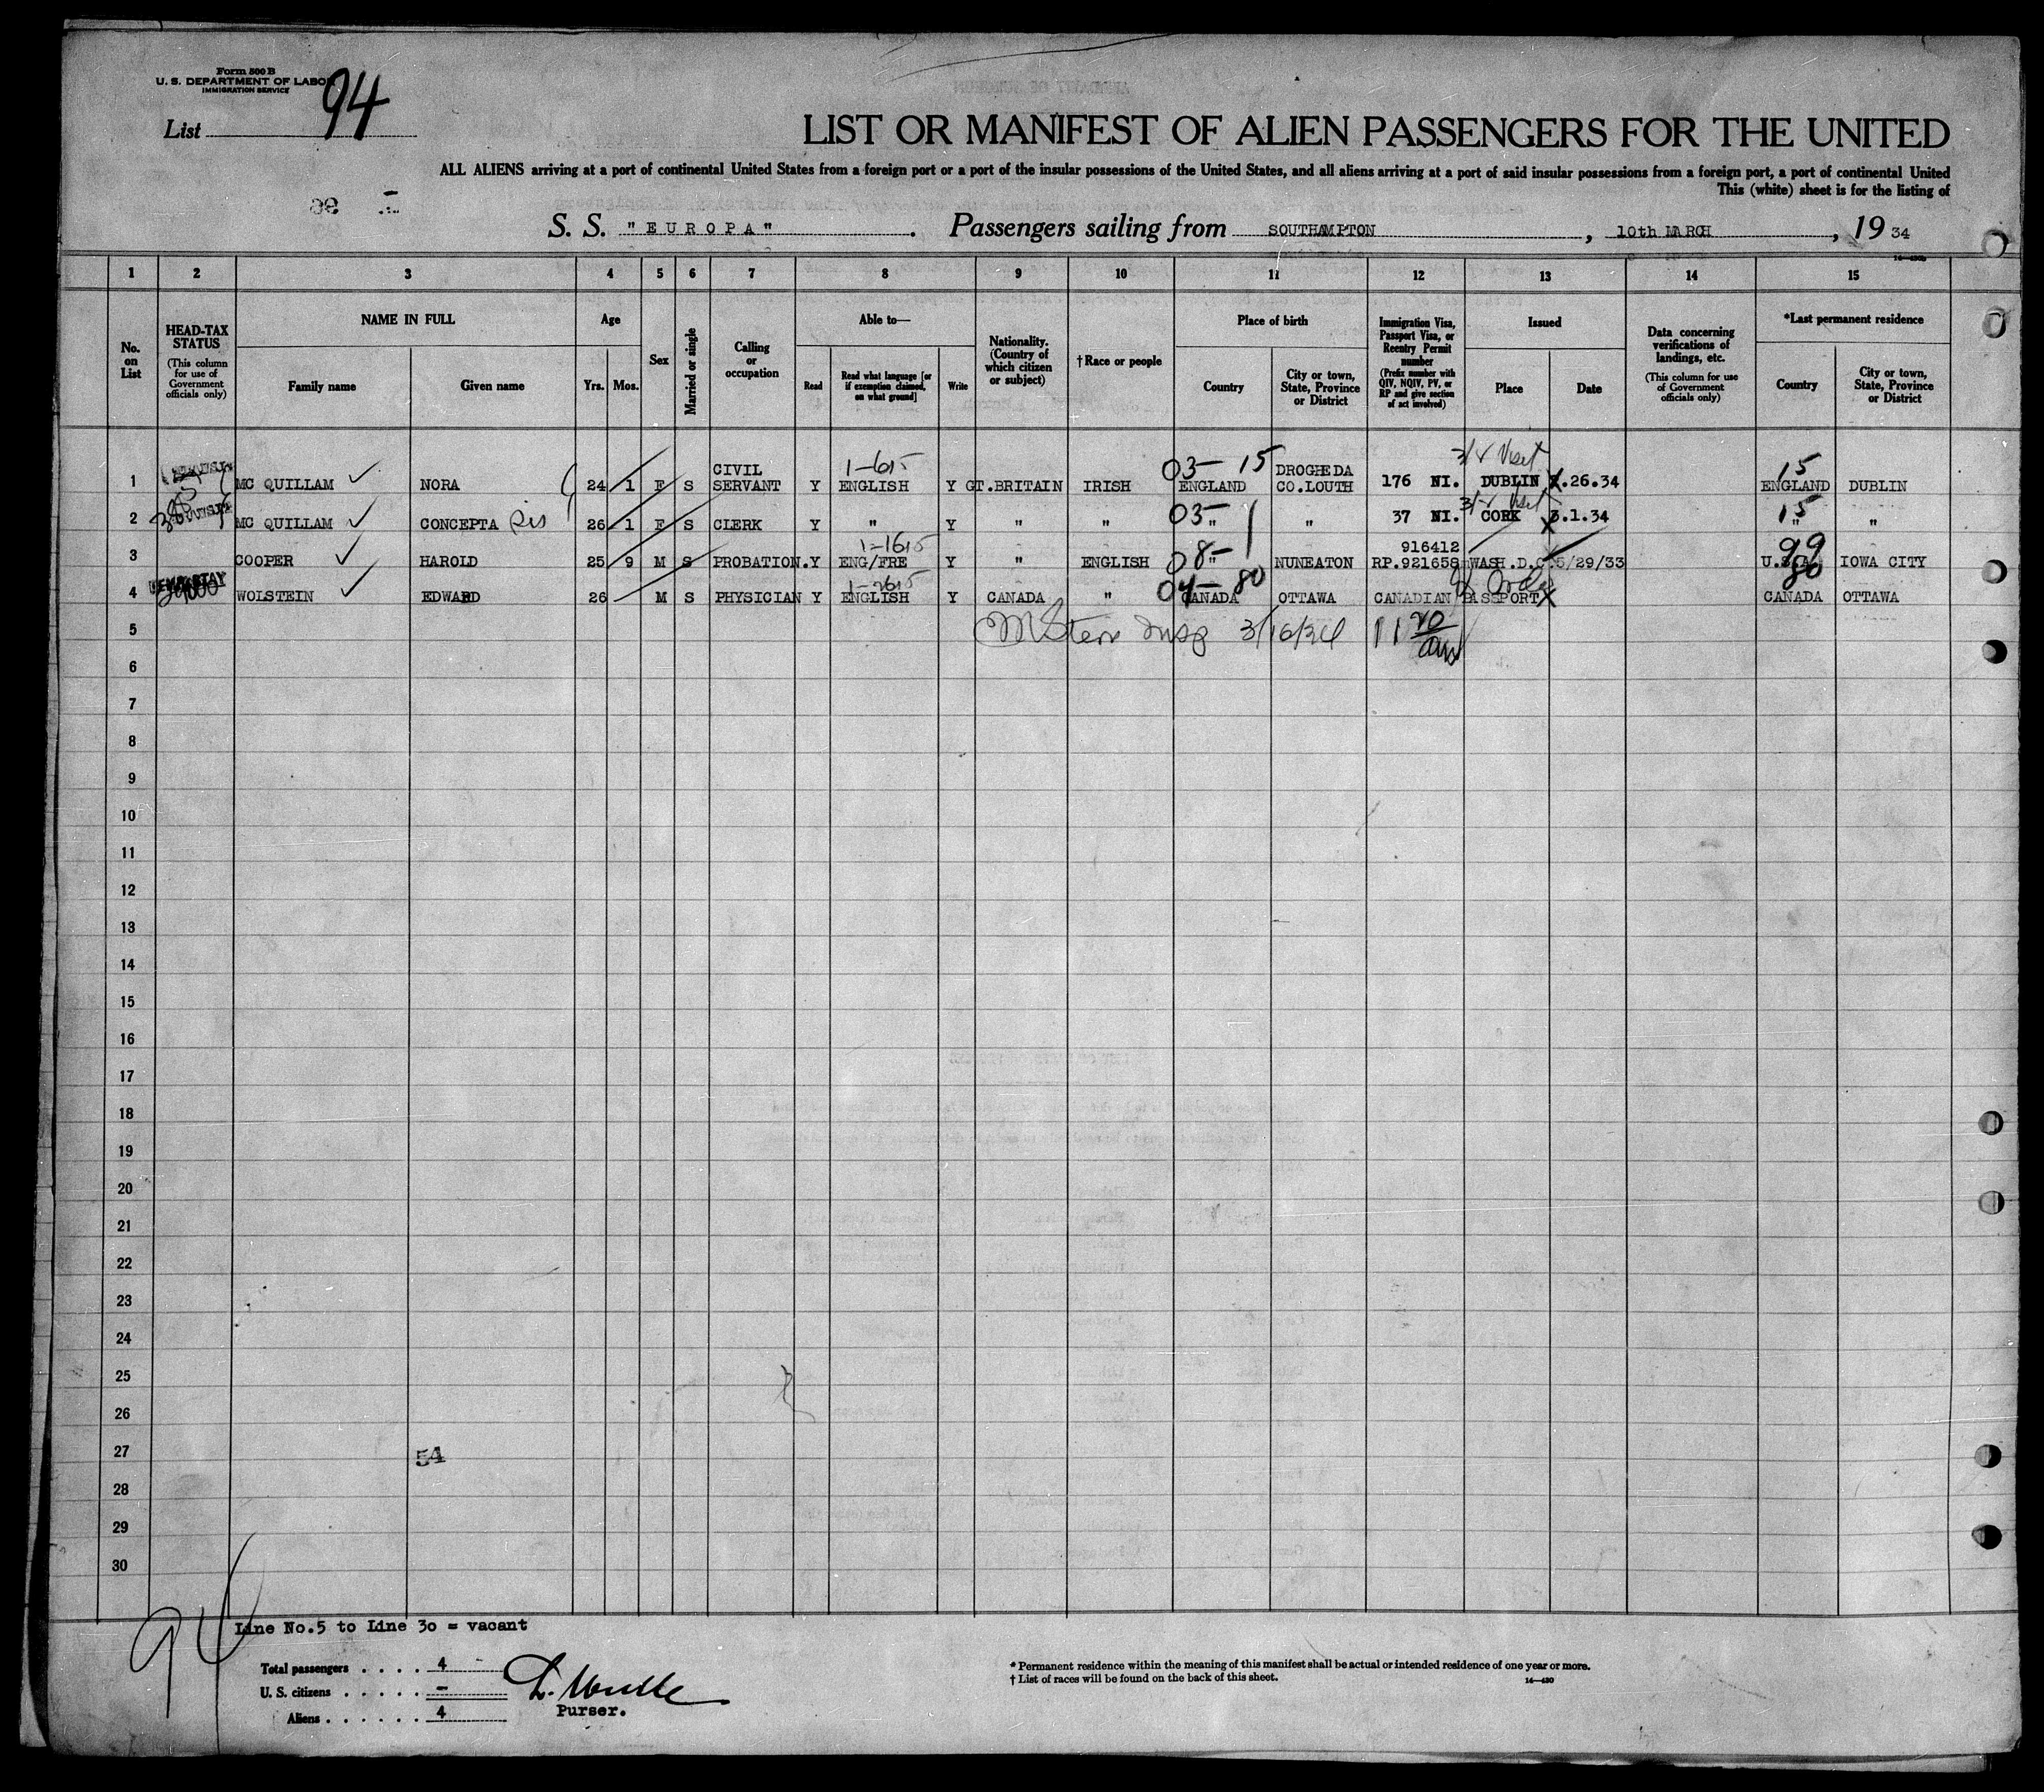 Form 500 B
U. S. DEPARTMENT OF LABOR
IMMIGRATION SERVICE
List 94
LIST OR MANIFEST OF ALIEN PASSENGERS FOR THE UNITED
ALL ALIENS arriving at a port of continental United States from a foreign port or a port of the insular possessions of the United States, and all aliens arriving at a port of said insular possessions from a foreign port, a port of continental United
This (white) sheet is for the listing of
S. S. "EUROPA". Passengers sailing from SOUTHAMPTON, 10th MARCH, 19 34
1 2 3 4 5 6 7 8 9 10 11 12 13 14 15
No. on List
HEAD-TAX STATUS (This column for use of Government officials only)
NAME IN FULL
Family name
Given name
Age
Yrs. Mos.
Sex
Married or single
Calling or occupation
Able to—
Read
Read what language [or if exemption claimed, on what ground]
Write
Nationality. (Country of which citizen or subject)
†Race or people
Place of birth
Country
City or town, State, Province or District
Immigration Visa, Passport Visa, or Reentry Permit number (Prefix number with QIV, NQIV, PV, or RP and give section of act involved)
Issued
Place
Date
Data concerning verifications of landings, etc. (This column for use of Government officials only)
*Last permanent residence
Country
City or town, State, Province or District
1-615 03- 15 3/4 Visit 15
1 MC QUILLAM NORA 24 1 F S CIVIL SERVANT Y ENGLISH Y GT.BRITAIN IRISH ENGLAND DROGHEDA CO.LOUTH 176 NI. DUBLIN .26.34 ENGLAND DUBLIN
03- Visit 15
2 MC QUILLAM CONCEPTA 26 1 F S CLERK Y " Y " " " " 37 NI. CORK 3.1.34 " "
1-1615 08- 916412 99
3 COOPER HAROLD 25 9 M S PROBATION. Y ENG/FRE Y " ENGLISH " NUNEATON RP.921658 WASH.D.C. 5/29/33 U.S.A. IOWA CITY
1-2615 04- 80 80
4 WOLSTEIN EDWARD 26 M S PHYSICIAN Y ENGLISH Y CANADA " CANADA OTTAWA CANADIAN PASSPORT CANADA OTTAWA
5 Stern Insp 3/16/34
6
7
8
9
10
11
12
13
14
15
16
17
18
19
20
21
22
23
24
25
26
27 54
28
29
30
94
Line No.5 to Line 30 = vacant
Total passengers . . . . 4
U. S. citizens . . . . . –
Aliens . . . . . . 4
Purser.
* Permanent residence within the meaning of this manifest shall be actual or intended residence of one year or more.
† List of races will be found on the back of this sheet.
14—430